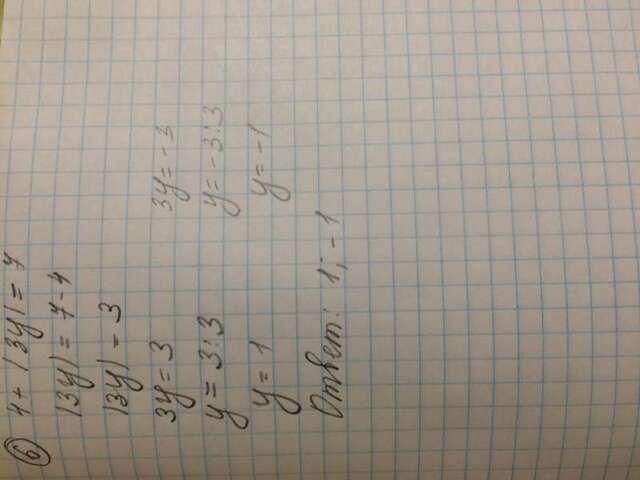 6 4 + |3y| = 7
|3y| = 7 - 4
|3y| = 3
3y = 3 3y = -3
y = 3:3 y = -3:3
y = 1 y = -1
Ответ: 1; -1